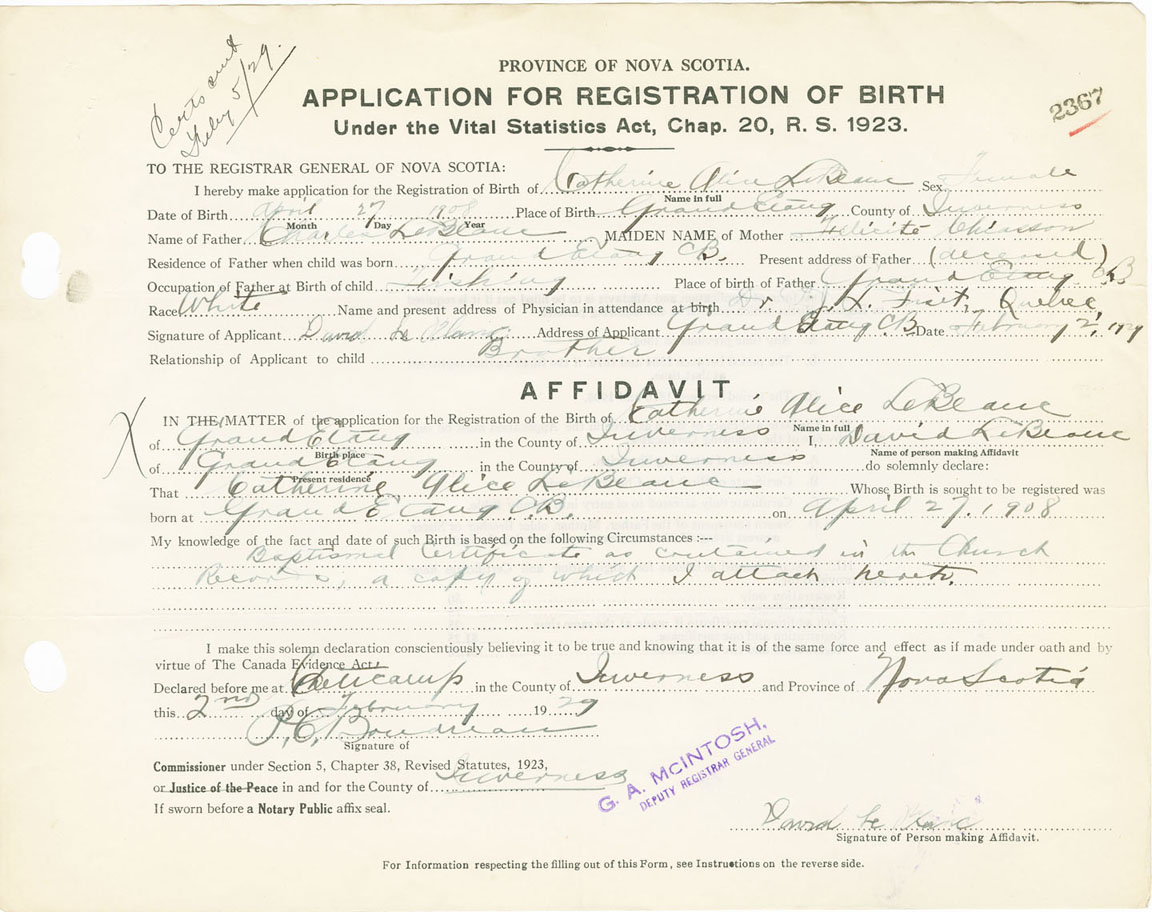 Certs sent
Feby 5/29.
PROVINCE OF NOVA SCOTIA.
APPLICATION FOR REGISTRATION OF BIRTH
2367
Under the Vital Statistics Act, Chap. 20, R. S. 1923.
TO THE REGISTRAR GENERAL OF NOVA SCOTIA:
I hereby make application for the Registration of Birth of Catherine Alice LeBlanc Sex Female
Name in full
Date of Birth April 27 1908 Place of Birth Grand Etang County of Inverness
Month Day Year
Name of Father Charles LeBlanc MAIDEN NAME of Mother Felicité Chiasson
Residence of Father when child was born Grand Etang CB. Present address of Father (deceased)
Occupation of Father at Birth of child Fishing Place of birth of Father Grand Etang CB
Race White Name and present address of Physician in attendance at birth Dr. L. Fiset, Quebec
Signature of Applicant David Le Blanc Address of Applicant Grand Etang C.B. Date February 2, 1929
Relationship of Applicant to child Brother
AFFIDAVIT
IN THE MATTER of the application for the Registration of the Birth of Catherine Alice LeBlanc
Name in full
of Grand Etang in the County of Inverness I, David LeBlanc
Birth place Name of person making Affidavit
of Grand Etang in the County of Inverness do solemnly declare:
Present residence
That Catherine Alice LeBlanc Whose Birth is sought to be registered was
born at Grand Etang C.B. on April 27, 1908
My knowledge of the fact and date of such Birth is based on the following Circumstances :---
Baptismal Certificate as contained in the Church
Records, a copy of which I attach hereto.
I make this solemn declaration conscientiously believing it to be true and knowing that it is of the same force and effect as if made under oath and by
virtue of The Canada Evidence Act.
Declared before me at Cheticamp in the County of Inverness and Province of Nova Scotia
this 2nd day of February 1929
P. C. Boudreau
Signature of
Commissioner under Section 5, Chapter 38, Revised Statutes, 1923,
or Justice of the Peace in and for the County of Inverness
If sworn before a Notary Public affix seal.
G. A. McINTOSH,
DEPUTY REGISTRAR GENERAL
David Le Blanc
Signature of Person making Affidavit.
For Information respecting the filling out of this Form, see Instructions on the reverse side.